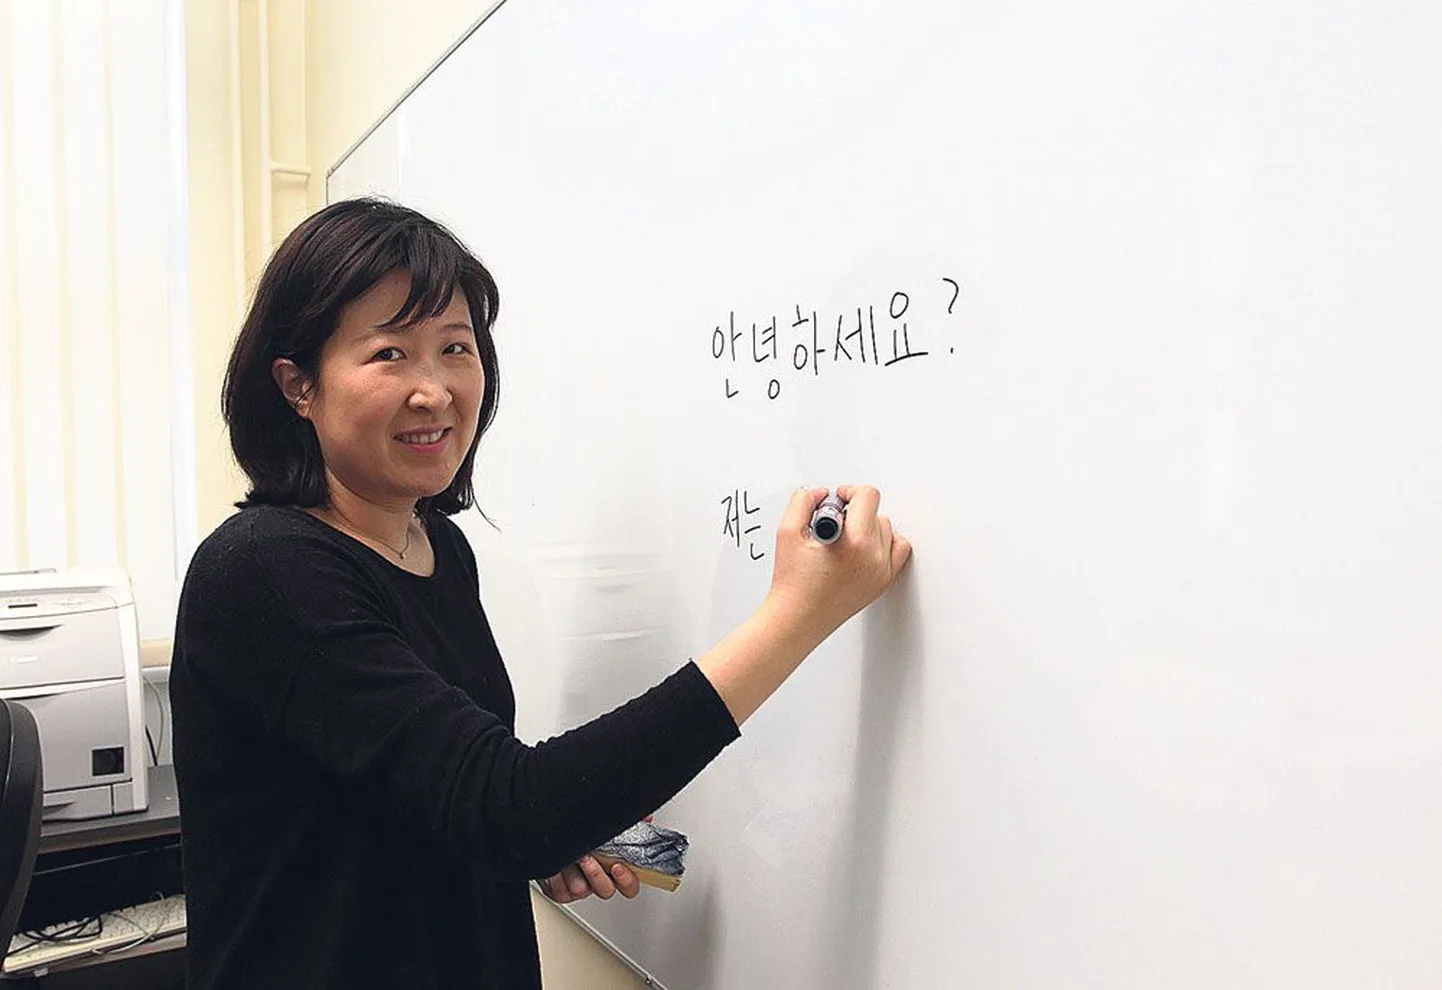 안녕하세요?
저는